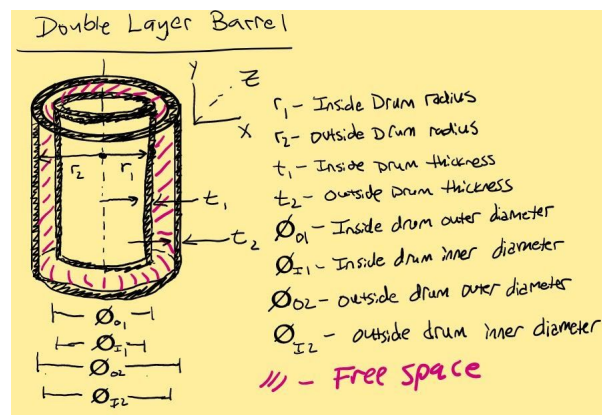 Double Layer Barrel
Y
Z
X
r₂ r₁
t₁
t₂
Ø₀₁
Ø_I₁
Ø₀₂
Ø_I2
r₁ - Inside Drum radius
r₂ - outside Drum radius
t₁ - Inside Drum thickness
t₂ - outside Drum thickness
Ø₀₁ - Inside drum outer diameter
Ø_I1 - Inside drum inner diameter
Ø₀2 - outside drum outer diameter
Ø_I2 - outside drum inner diameter
/// - Free space